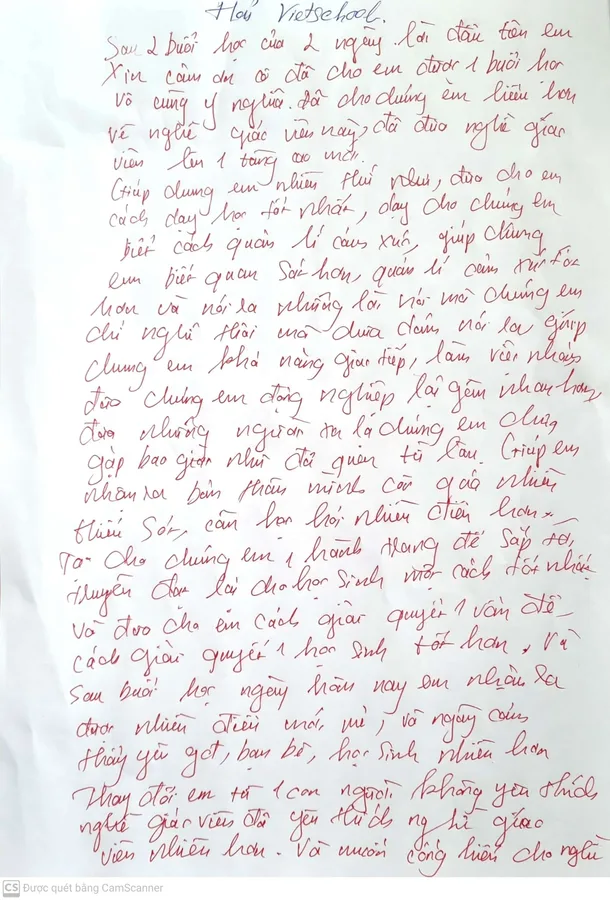 Hải Vietschool.
Sau 2 buổi học của 2 ngày. lời đầu tiên em
Xin cảm ơn cô đã cho em được 1 buổi học
vô cùng ý nghĩa. Đã cho chúng em hiểu hơn
về nghề giáo viên này, đã đưa nghề giáo
viên lên 1 tầng cao mới.
Giúp chúng em nhiều thứ như, đưa cho em
cách dạy học tốt nhất, dạy cho chúng em
biết cách quản lí cảm xúc, giúp chúng
em biết quan sát hơn, quản lí cảm xúc tốt
hơn và nói ra những lời nói mà chúng em
chỉ nghĩ thôi mà chưa dám nói ra, giúp
chúng em khả năng giao tiếp, làm việc nhóm
đưa chúng em đồng nghiệp lại gần nhau hơn,
đưa những người xa lạ chúng em chưa
gặp bao giờ như đã quen từ lâu. Giúp em
nhận ra bản thân mình còn quá nhiều
thiếu sót, cần học hỏi nhiều điều hơn.
cho chúng em 1 hành trang để sắp tới,
truyền đạt lại cho học sinh một cách tốt nhất.
Và đưa cho em cách giải quyết 1 vấn đề
cách giải quyết 1 học sinh tốt hơn. Và
sau buổi học ngày hôm nay em nhận ra
được nhiều điều mới mẻ, và ngày càng
thấy yêu gđ, bạn bè, học sinh nhiều hơn
Thay đổi em từ 1 con người không yêu thích
nghề giáo viên đã yêu thích nghề giáo
viên nhiều hơn. Và muốn cống hiến cho nghề
CS Được quét bằng CamScanner